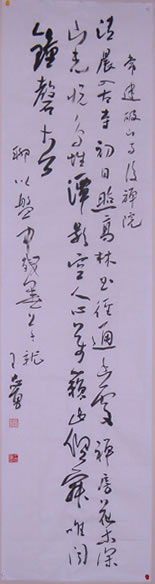 常建破山寺後禪院
清晨入古寺初日照高林曲徑通幽處禪房花木深
山光悅鳥性潭影空人心萬籟此俱寂唯聞
鐘磬音